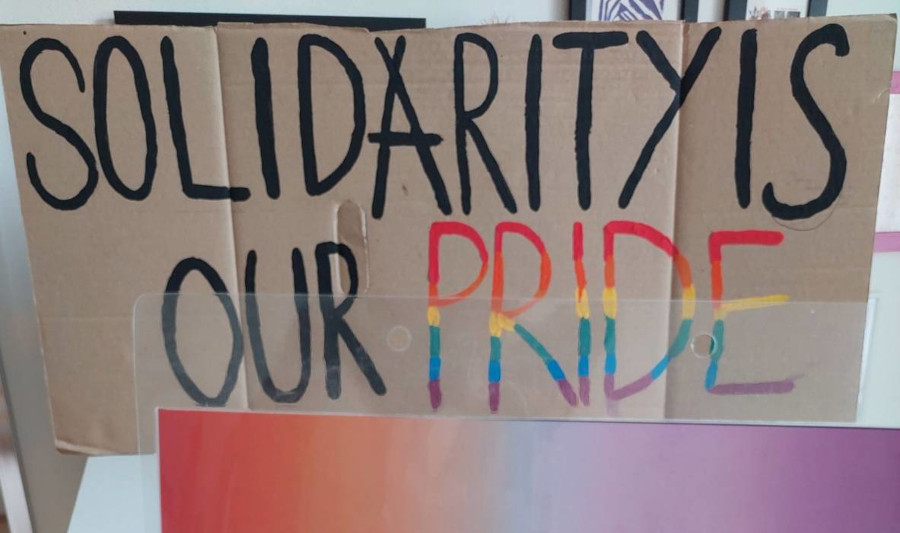 SOLIDARITY IS
OUR PRIDE